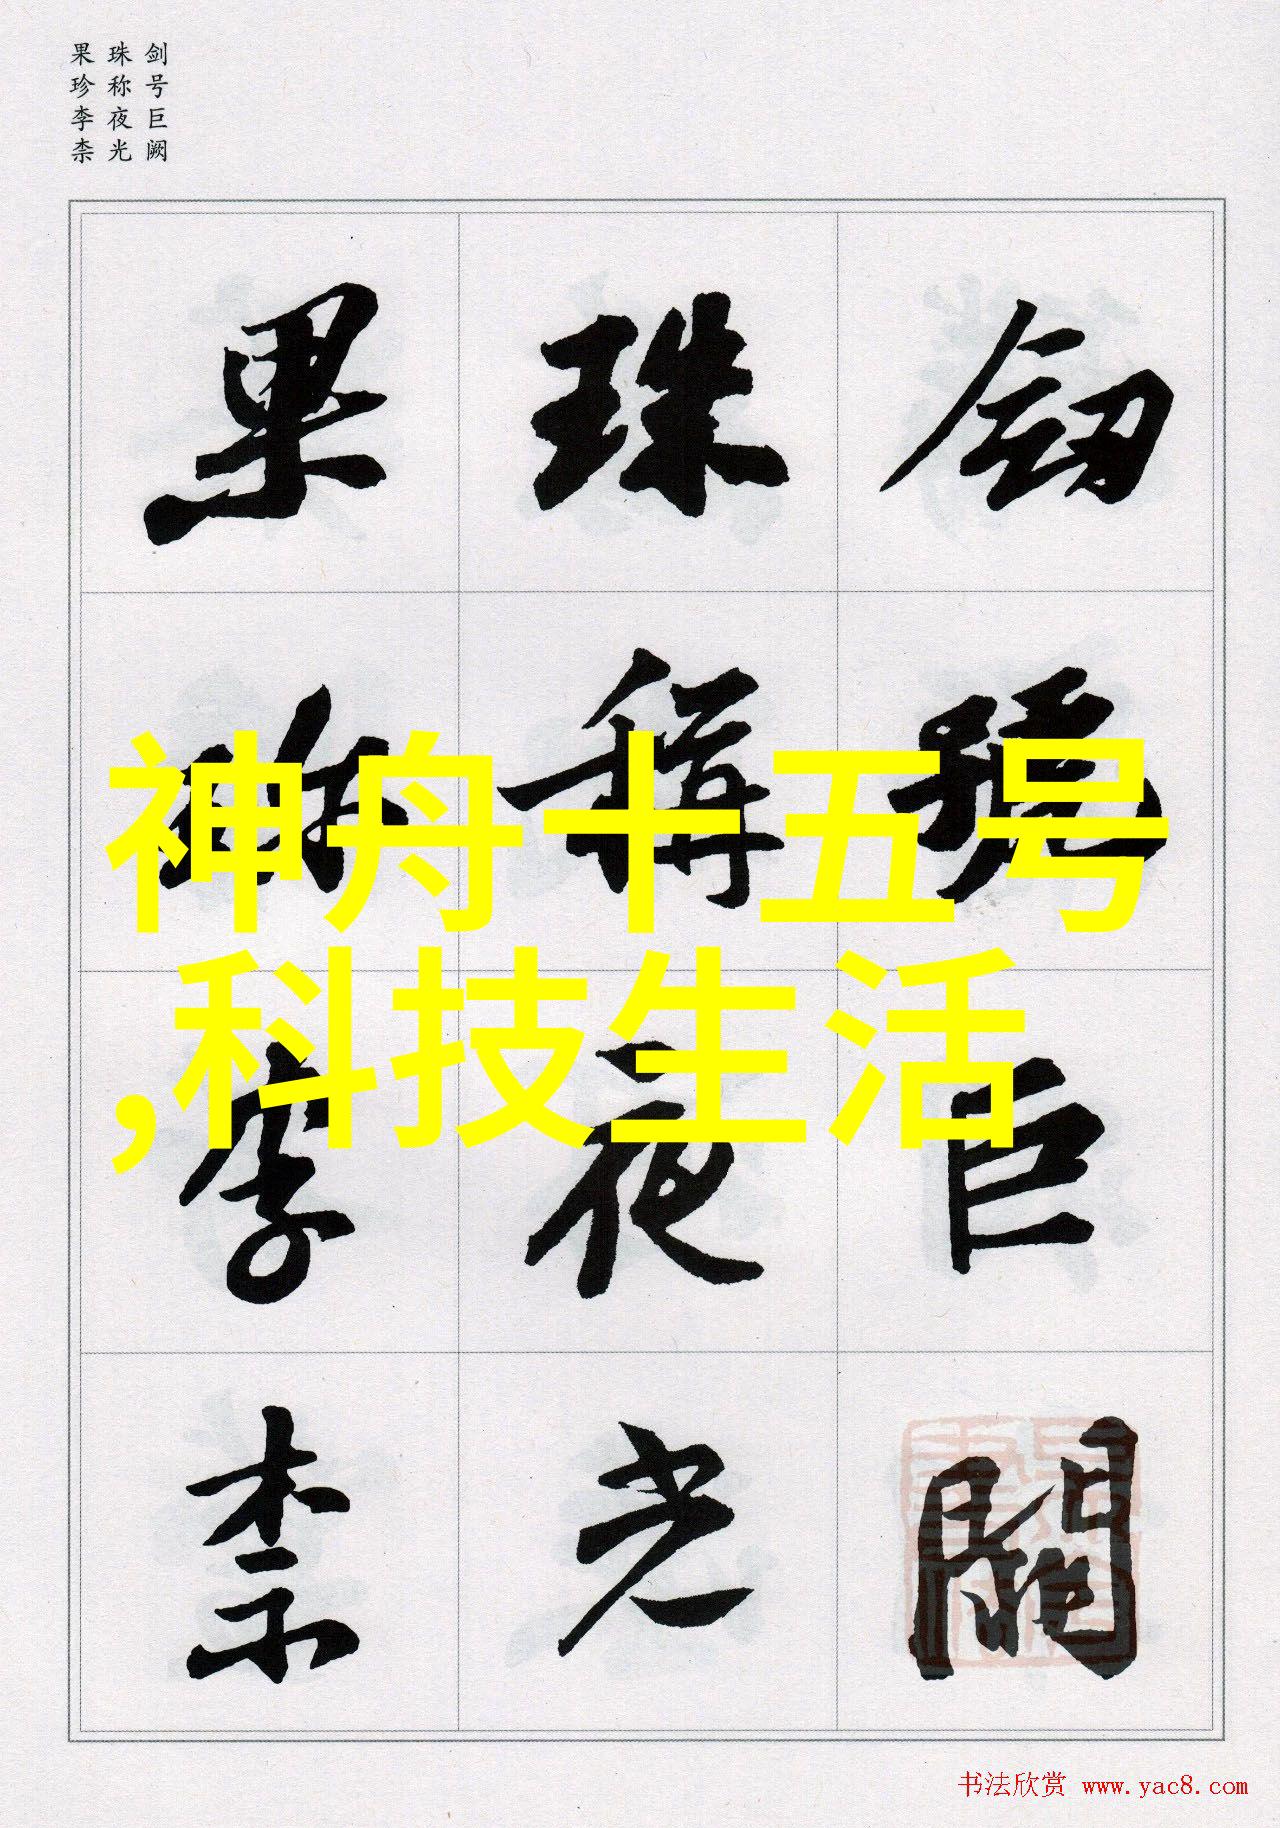 剑号巨阙
珠称夜光
果珍李柰
釼號巨闕
珠稱夜光
果珎李柰
神舟十五号
,科技生活
书法欣赏 www.yac8.com